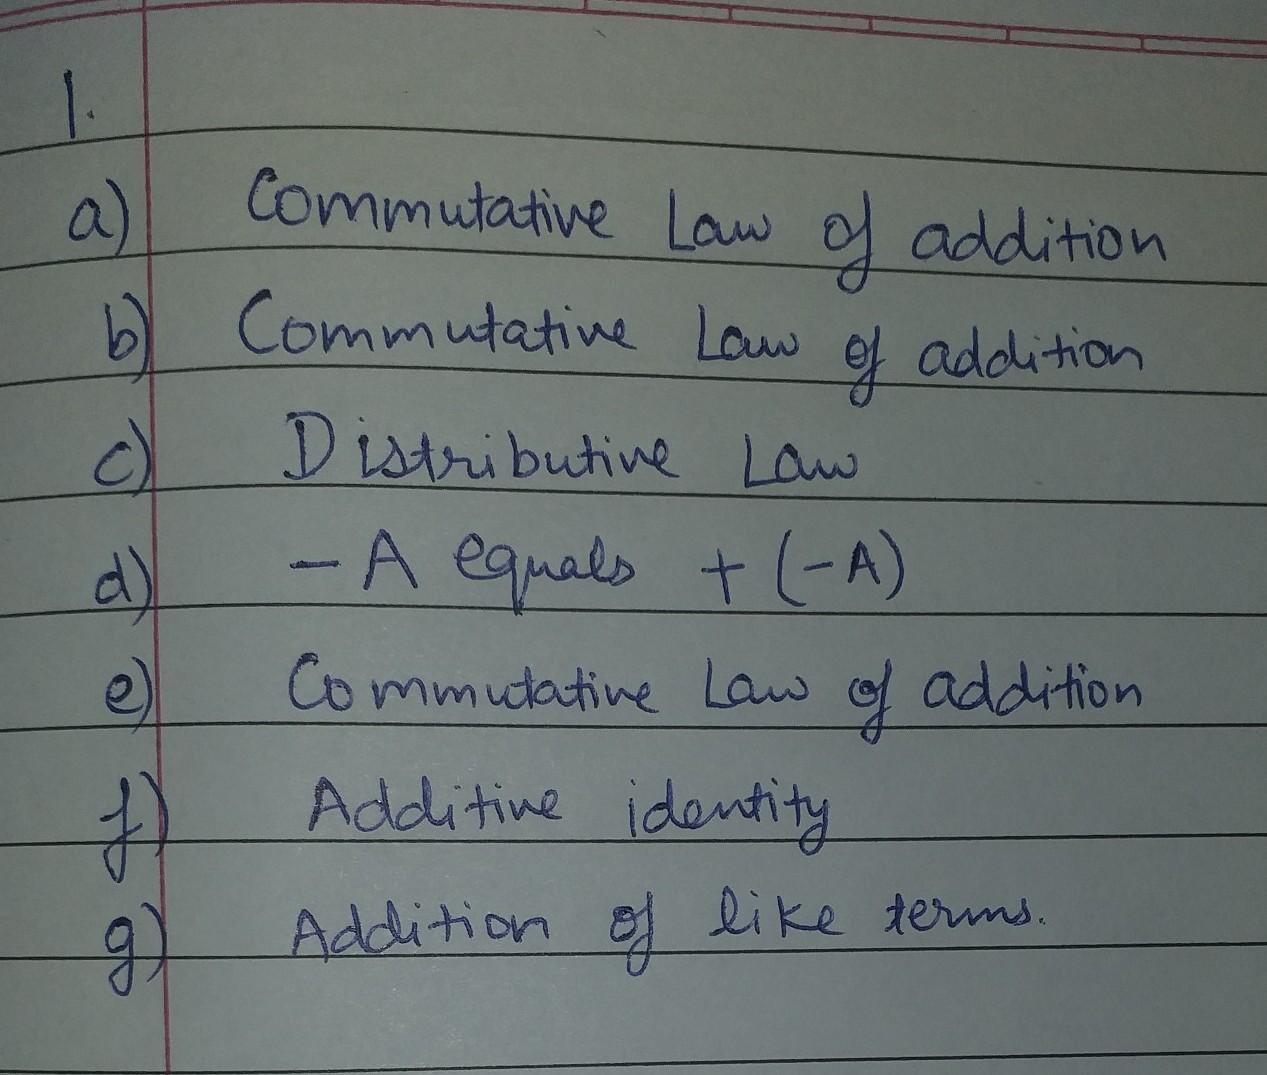 1.
a) Commutative Law of addition
b) Commutative Law of addition
c) Distributive Law
d) - A equals + (-A)
e) Commutative Law of addition
f) Additive identity
g) Addition of like terms.